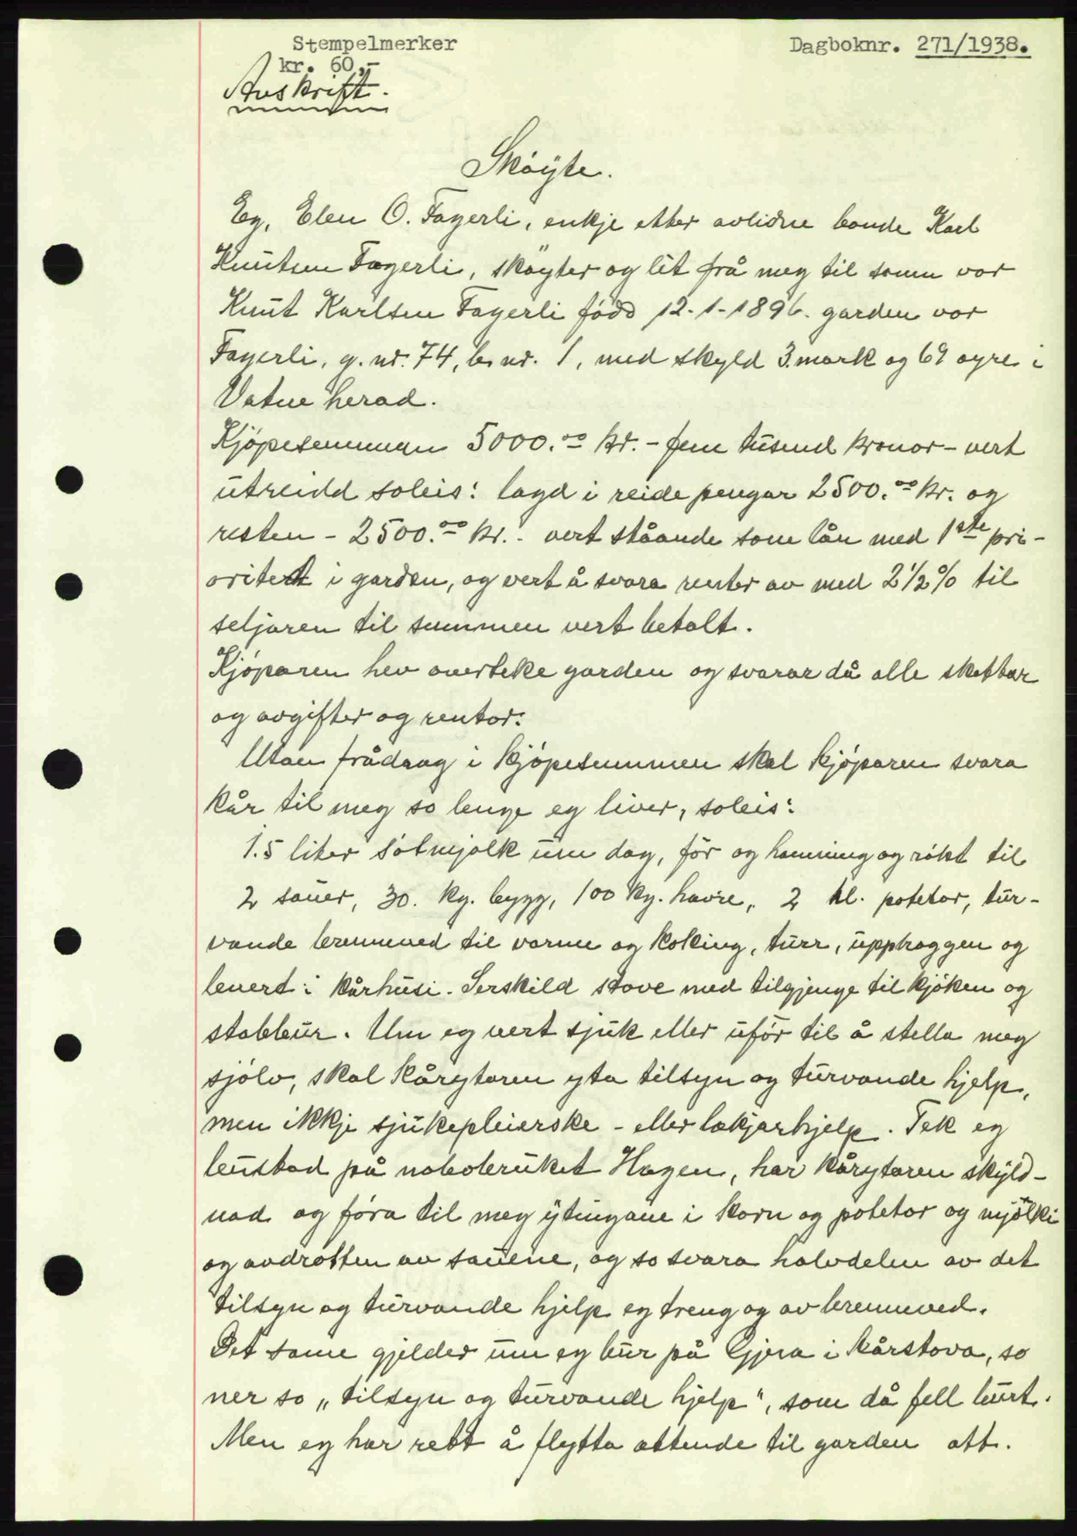 Stempelmerker
kr. 60,-
Dagboknr. 271/1938.
Avskrift.
Skøyte.
Eg, Elen O. Fagerli, enkje etter avlidne bonde Karl
Knutsen Fagerli, skøyter og lit frå meg til sonen vor
Knut Karlsen Fagerli fødd 12-1-1896. garden vor
Fagerli, g. nr. 74, b. nr. 1, med skyld 3 mark og 69 øyre i
Vatne herad.
Kjøpesummen 5000.00 kr. - fem tusend kronor - vert
utreidd soleis: lagd i reide pengar 2500.00 kr. og
resten - 2500.00 kr. - vert ståande som lån med 1ste pri-
oritet i garden, og vert å svara renter av med 2½% til
seljaren til summen vert betalt.
Kjøparen hev overteke garden og svarar då alle skattar
og avgifter og rentor.
Utan frådrag i kjøpesummen skal kjøparen svara
kår til meg so lenge eg liver, soleis:
1.5 liter søtmjølk um dag, fôr og hamning og røkt til
2 sauer, 30. kg. bygg, 100 kg. havre, 2 hl. potetor, tur-
vande brenneved til varme og koking, turr, upphoggen og
levert i kårhusi. Serskild stove med tilgjenge til kjøken og
stabbur. Um eg vert sjuk eller ufør til å stella meg
sjølv, skal kårytaren yta tilsyn og turvande hjelp,
men ikkje sjukepleierske - eller lækjarhjelp. Tek eg
bustad på nabobruket Hagen, har kårytaren skyld-
nad og føra til meg ytingane i korn og potetor og mjølki
og avdråtten av sauene, og so svara halvdelen av det
tilsyn og turvande hjelp eg treng og av brenneved.
Det same gjelder um eg bur på Gjera i kårstova, so
ner so „tilsyn og turvande hjelp", som då fell burt.
Men eg har rett å flytta attende til garden att.